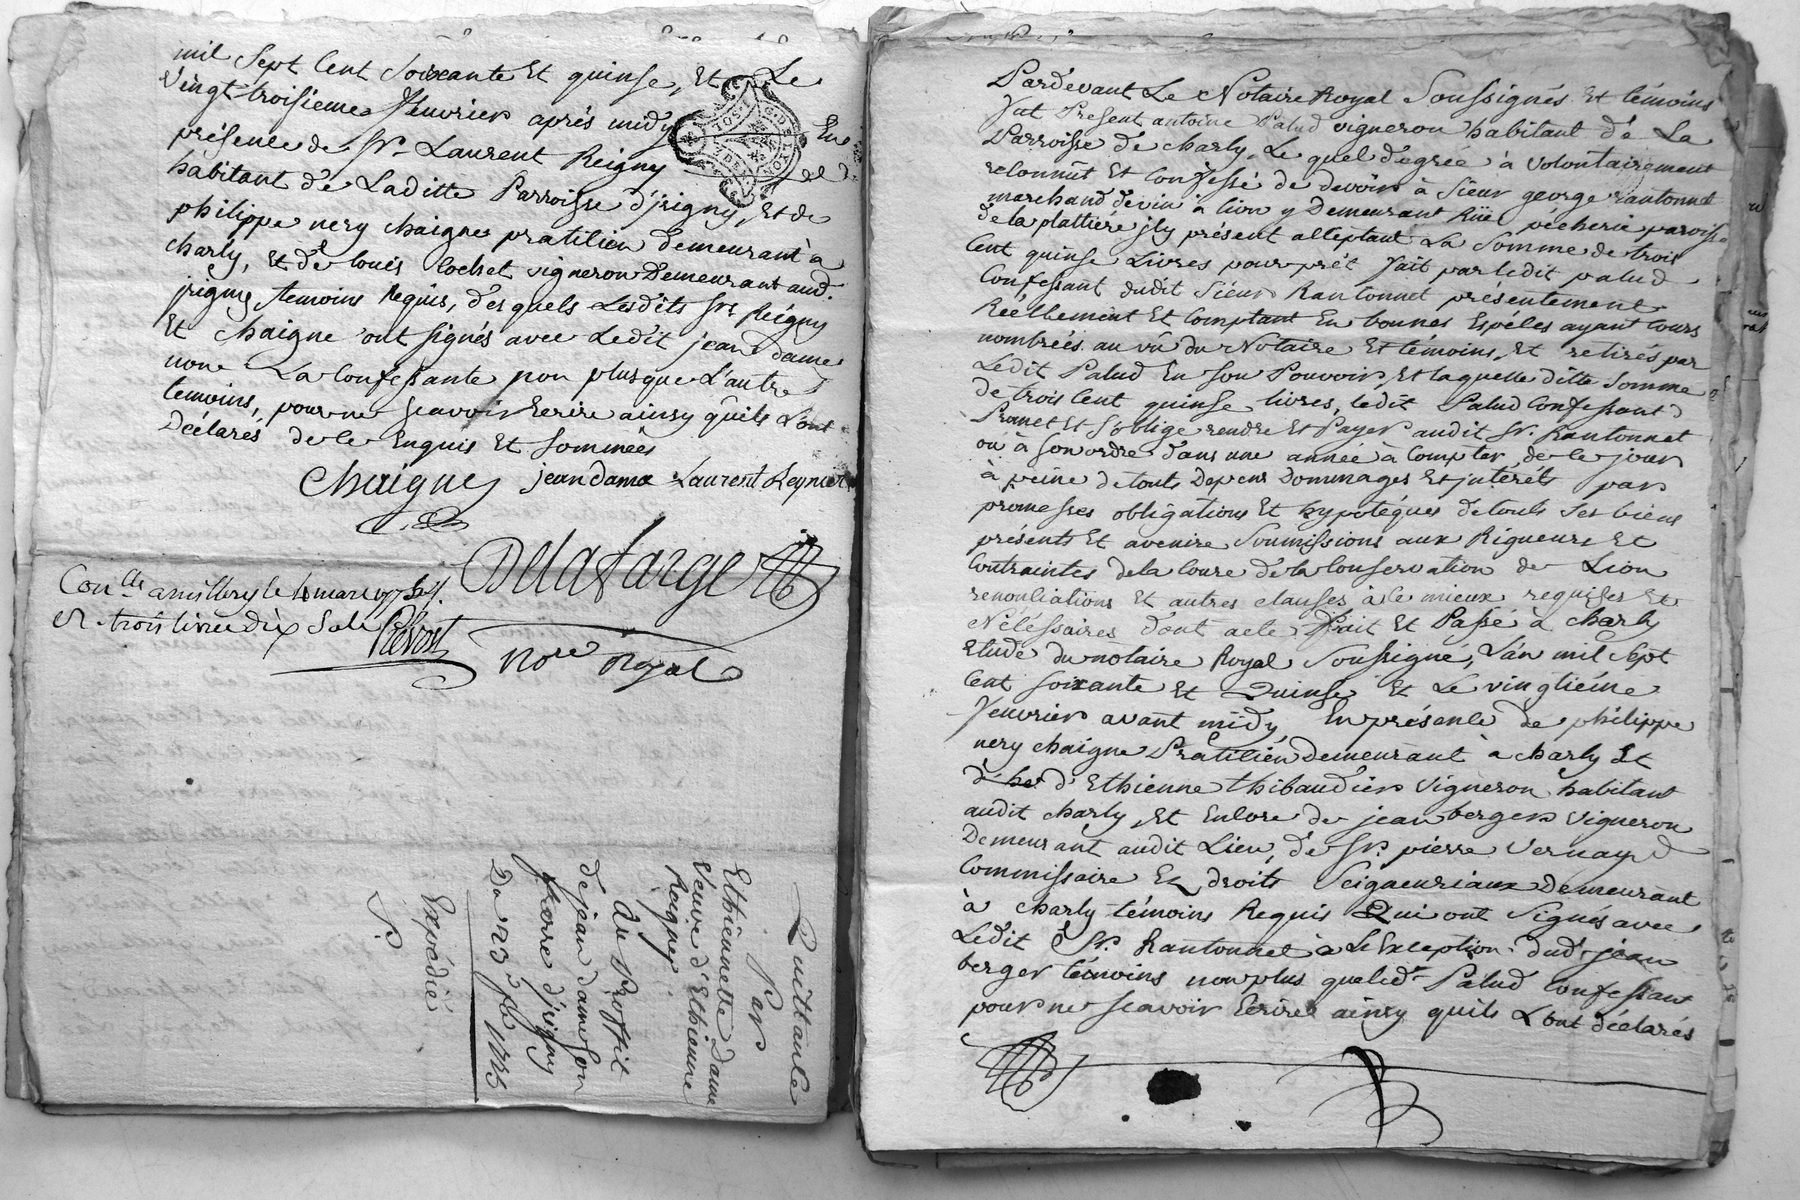 mil Sept Cent Soixante Et quinse, Et Le
Vingt troisieme feuvrier aprés midy En
présence de Sr. Laurent Reigny
habitant de Laditte Parroisse d'jrigny, Et de
philippe nery chaigne pratitien demeurant à
charly, Et de louis Cochet vigneron Demeurant aud.
jrigny temoins Requis, desquels Lesdits Srs Reigny
Et chaigne ont signés avec Ledit jean dame
non La Confessante non plusque L'autre
temoins, pour ne scavoir Ecrire ainsy quils L'ont
Déclarés de ce Enquis Et Sommées
Chaigne jean dame Laurent Reynier
Delafarge
Nore Royal
Con.lle a millery le 4 mars 1775
R. trois livres dix Sols Prévost
Quittance
Par
Ethiennette Dame
Veuve d'Ethienne
Reigner
Au Proffit
de jean dame Son
frerre d'jrigny
Du 23e fb. 1775
Expédiée
P
Pardevant Le Notaire Royal Soussignés Et témoins
fut Present antoine Palud vigneron habitant de La
Parroisse de charly, Le quel de gree à volontairement
reconnût Et Confessé de devoir à Sieur george rantonnet
marchand de vin à lion y Demeurant Rüe pécherie paroisse
de la plattiére jly présent acceptant La Somme de trois
Cent quinse Livres pour prêt fait par ledit palud
Confessant dudit Sieur Rantonnet présentement
Réellement Et Comptant En bonnes Espéces ayant Cours
nombreés au vû du Notaire Et témoins, Et retirés par
Ledit Palud En Son Pouvoir, Et laquelle ditte Somme
de trois Cent quinse livres, ledit Palud Confessant
Promet Et S'oblige rendre Et Payer audit Sr. Rantonnet
ou à Son ordre dans une année à Compter de Ce jour
à peine de touts Depens Dommages Et jntérêts par
promesses obligations Et hypotéques de touts Ses biens
présents Et avenire Soumissions aux Rigueurs Et
Contraintes de la Cour de la Conservation de Lion
renonciations Et autres clauses à Ce mieux requises Et
Nécéssaires dont acte fait Et Passé à charly
Etude du notaire Royal Soussigné, L'an mil Sept
Cent soixante Et Quinse Et Le vingtiéme
feuvrier avant midy, En présence de philippe
nery chaigne Pratitien Demeurant à charly Et
d'Ethienne thibaudier Vigneron habitant
audit charly, Et Encore de jean berger vigneron
Demeurant audit Lieu, de Sr. pierre Vernay
Commissaire Es droits Seigneuriaux Demeurant
à charly témoins Requis Qui ont Signés avec
Ledit Sr. Rantonnet à L'Exception dud. jean
berger témoins non plus que led. Palud Confessant
pour ne scavoir Ecrire ainsy quils L'ont déclarés